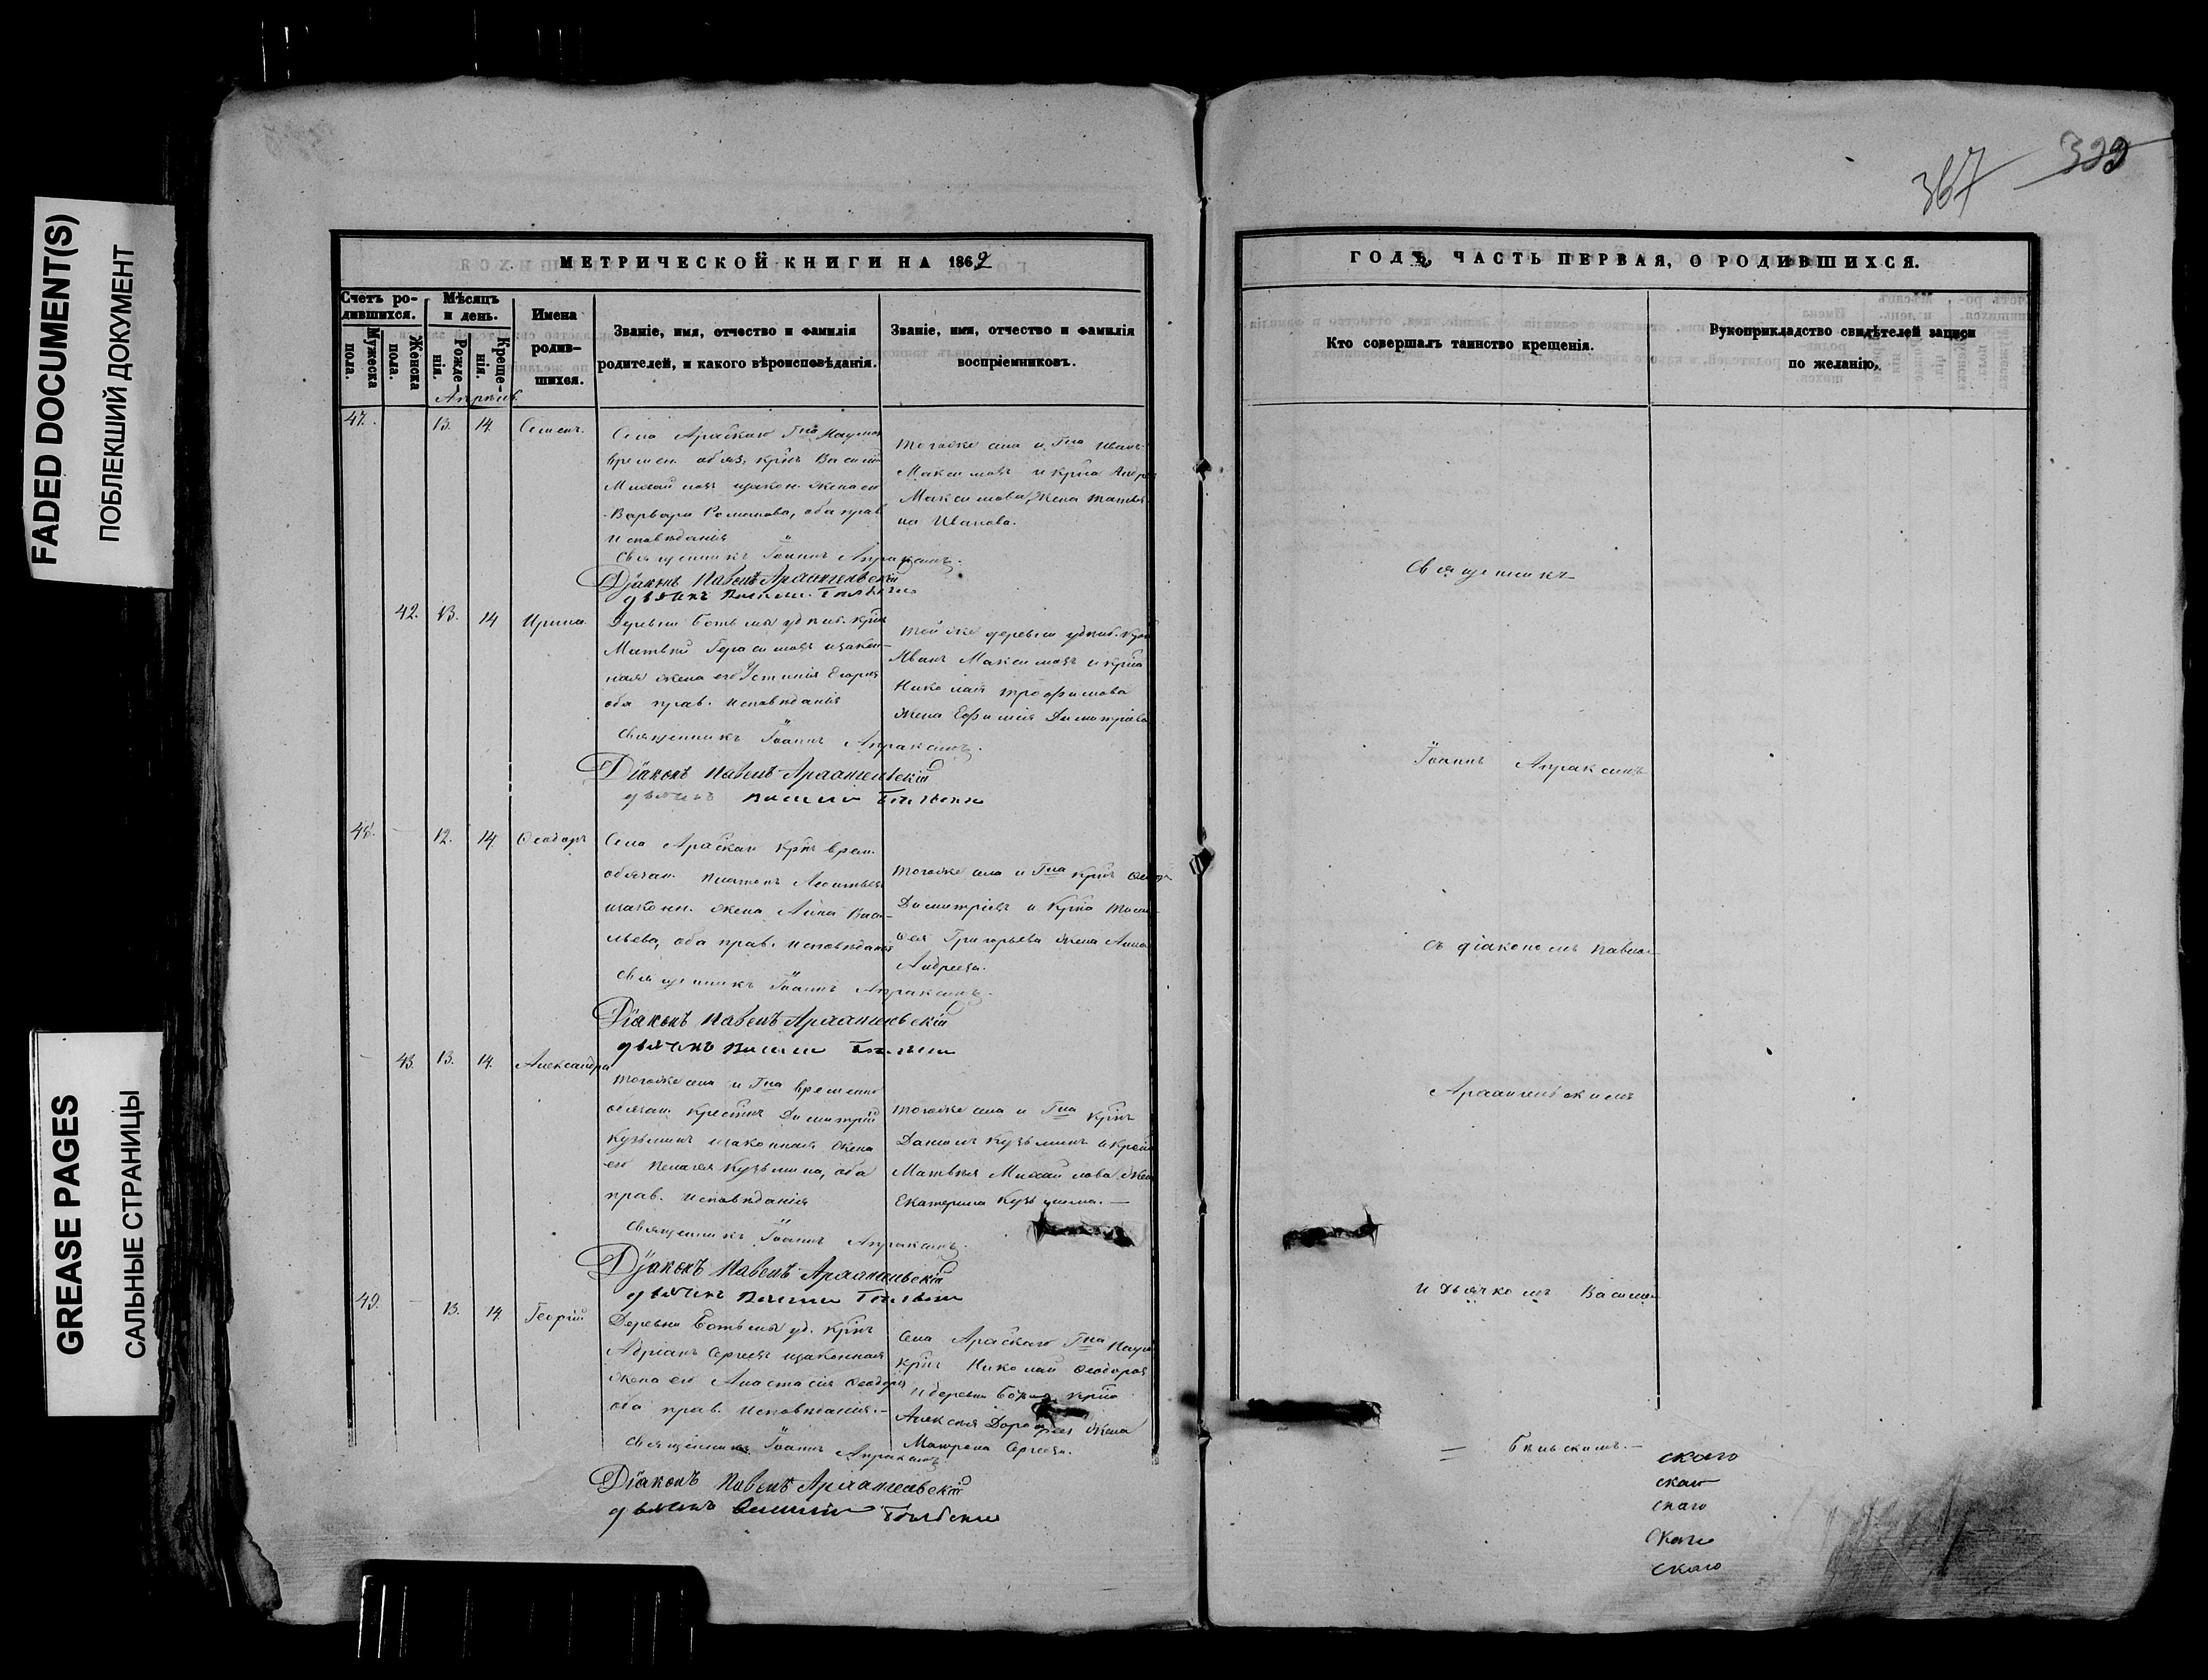 FADED DOCUMENT(S)
ПОБЛЕКШИЙ ДОКУМЕНТ
GREASE PAGES
САЛЬНЫЕ СТРАНИЦЫ
МЕТРИЧЕСКОЙ КНИГИ НА 1862
Счетъ ро-
дившихся.
Мужеска
пола.
Женска
пола.
Мѣсяцъ
и день.
Рожде-
нія.
Креще-
нія.
Имена
родив-
шихся.
Званіе, имя, отчество и фамилія
родителей, и какого вѣроисповѣданія.
Званіе, имя, отчество и фамилія
воспріемниковъ.
Апрѣль
47. 13. 14. Семенъ.
Села Арабскаго Гна Наумов
времен. обяз. крнъ Василій
Михайловъ и закон. жена его
Варвара Романова, оба прав.
исповѣданія
Священникъ Іоаннъ Апраксинъ.
Діаконъ Павелъ Архангельскій
дьячекъ Василій
тогоже села и Гна Иванъ
Максимовъ и крна Андрея
Максимова жена Татья-
на Иванова.
42. 13. 14 Ирина.
Деревни Ботьмы уд крнъ
Матвѣй Герасимовъ и закон-
ная жена его Устинія Егорова
оба прав. исповѣданія
Священникъ Іоаннъ Апраксинъ.
Діаконъ Павелъ Архангельскій
дьячекъ Василій
той же деревни
Иванъ Максимовъ и крна
Николая Трофимова
жена Ефимія Димитріева
48. 12. 14 Ѳеодоръ
Села Арабскаго крнъ врем.
обязан. Платонъ Леонтьевъ
и законн. жена Анна Васи-
льева, оба прав. исповѣданія
Священникъ Іоаннъ Апраксинъ.
Діаконъ Павелъ Архангельскій
дьячекъ Василій
тогоже села и Гна крнъ
Димитріевъ и крна Тимо-
ѳея Григорьева жена Анна
Андреева.
43. 13. 14. Александра
тогоже села и Гна временно
обязан. крестнъ Димитрій
Кузьминъ и законная жена
его Пелагея Кузьмина, оба
прав. исповѣданія
Священникъ Іоаннъ Апраксинъ.
Діаконъ Павелъ Архангельскій
дьячекъ Василій
тогоже села и Гна крнъ
Данилъ Кузьминъ и крест
Матвѣя Михайлова жена
Екатерина Кузьмина.
49. 13. 14. Георгій
Деревни Ботьмы уд. крнъ
Адріанъ Сергеевъ и законная
жена его Анастасія Ѳеодорова
оба прав. исповѣданія.
Священникъ Іоаннъ Апраксинъ
Діаконъ Павелъ Архангельскій
дьячекъ Василій
Села Арабскаго Гна Наумов
крнъ Николай Ѳеодоровъ
и деревни крна
Алексѣя Дорофеева жена
Матрена Сергеева.
367 399
ГОДЪ, ЧАСТЬ ПЕРВАЯ, О РОДИВШИХСЯ.
Кто совершалъ таинство крещенія.
Рукоприкладство свидѣтелей записи
по желанію.
Священникъ
Іоаннъ Апраксинъ
съ діакономъ Павлом
Архангельскимъ
и дьячкомъ Василіем
Бѣльскимъ.
скаго
скаго
скаго
скаго
скаго